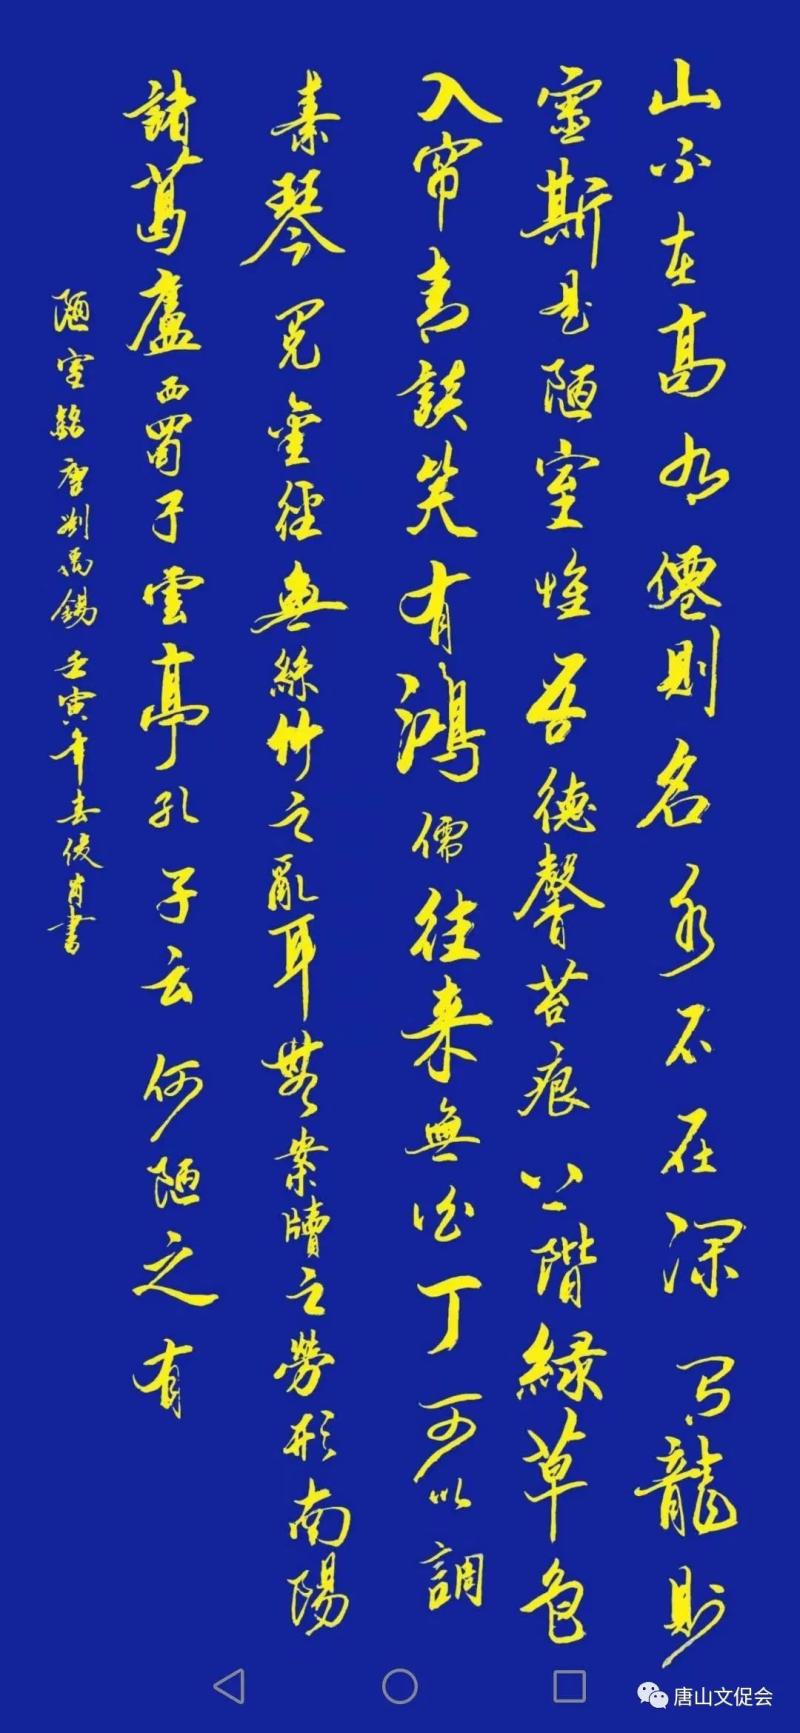 山不在高有僊則名水不在深有龍則
靈斯是陋室惟吾德馨苔痕上階緑草色
入帘青談笑有鴻儒往来無白丁可以調
素琴閲金徑無絲竹之亂耳無案牘之勞形南陽
諸葛廬西蜀子雲亭孔子云何陋之有
陋室銘唐劉禹錫壬寅年春俊肖書
唐山文促会